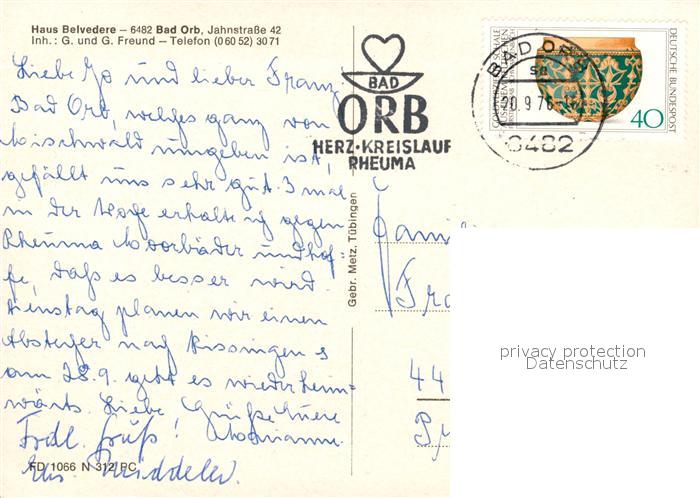 Haus Belvedere – 6482 Bad Orb, Jahnstraße 42
Inh.: G. und G. Freund – Telefon (0 60 52) 30 71
Liebe Jo und lieber Franz,
Bad Orb, welches ganz von
Mischwald umgeben ist,
gefällt uns sehr gut. 3 mal
in der Woche erhalte ich gegen
Rheuma Moorbäder und hof-
fe, daß es besser wird.
Dienstag planen wir einen
Abstecher nach Kissingen &
am 28.9. geht es wieder heim-
wärts. Liebe Grüße Eure
Frdl. Gruß! Marianne
FD/1066 N 312/PC
Gebr. Metz, Tübingen
BAD
ORB
HERZ·KREISLAUF
RHEUMA
BAD ORB
20.9.76
6482
DEUTSCHE BUNDESPOST
40
Fra
44